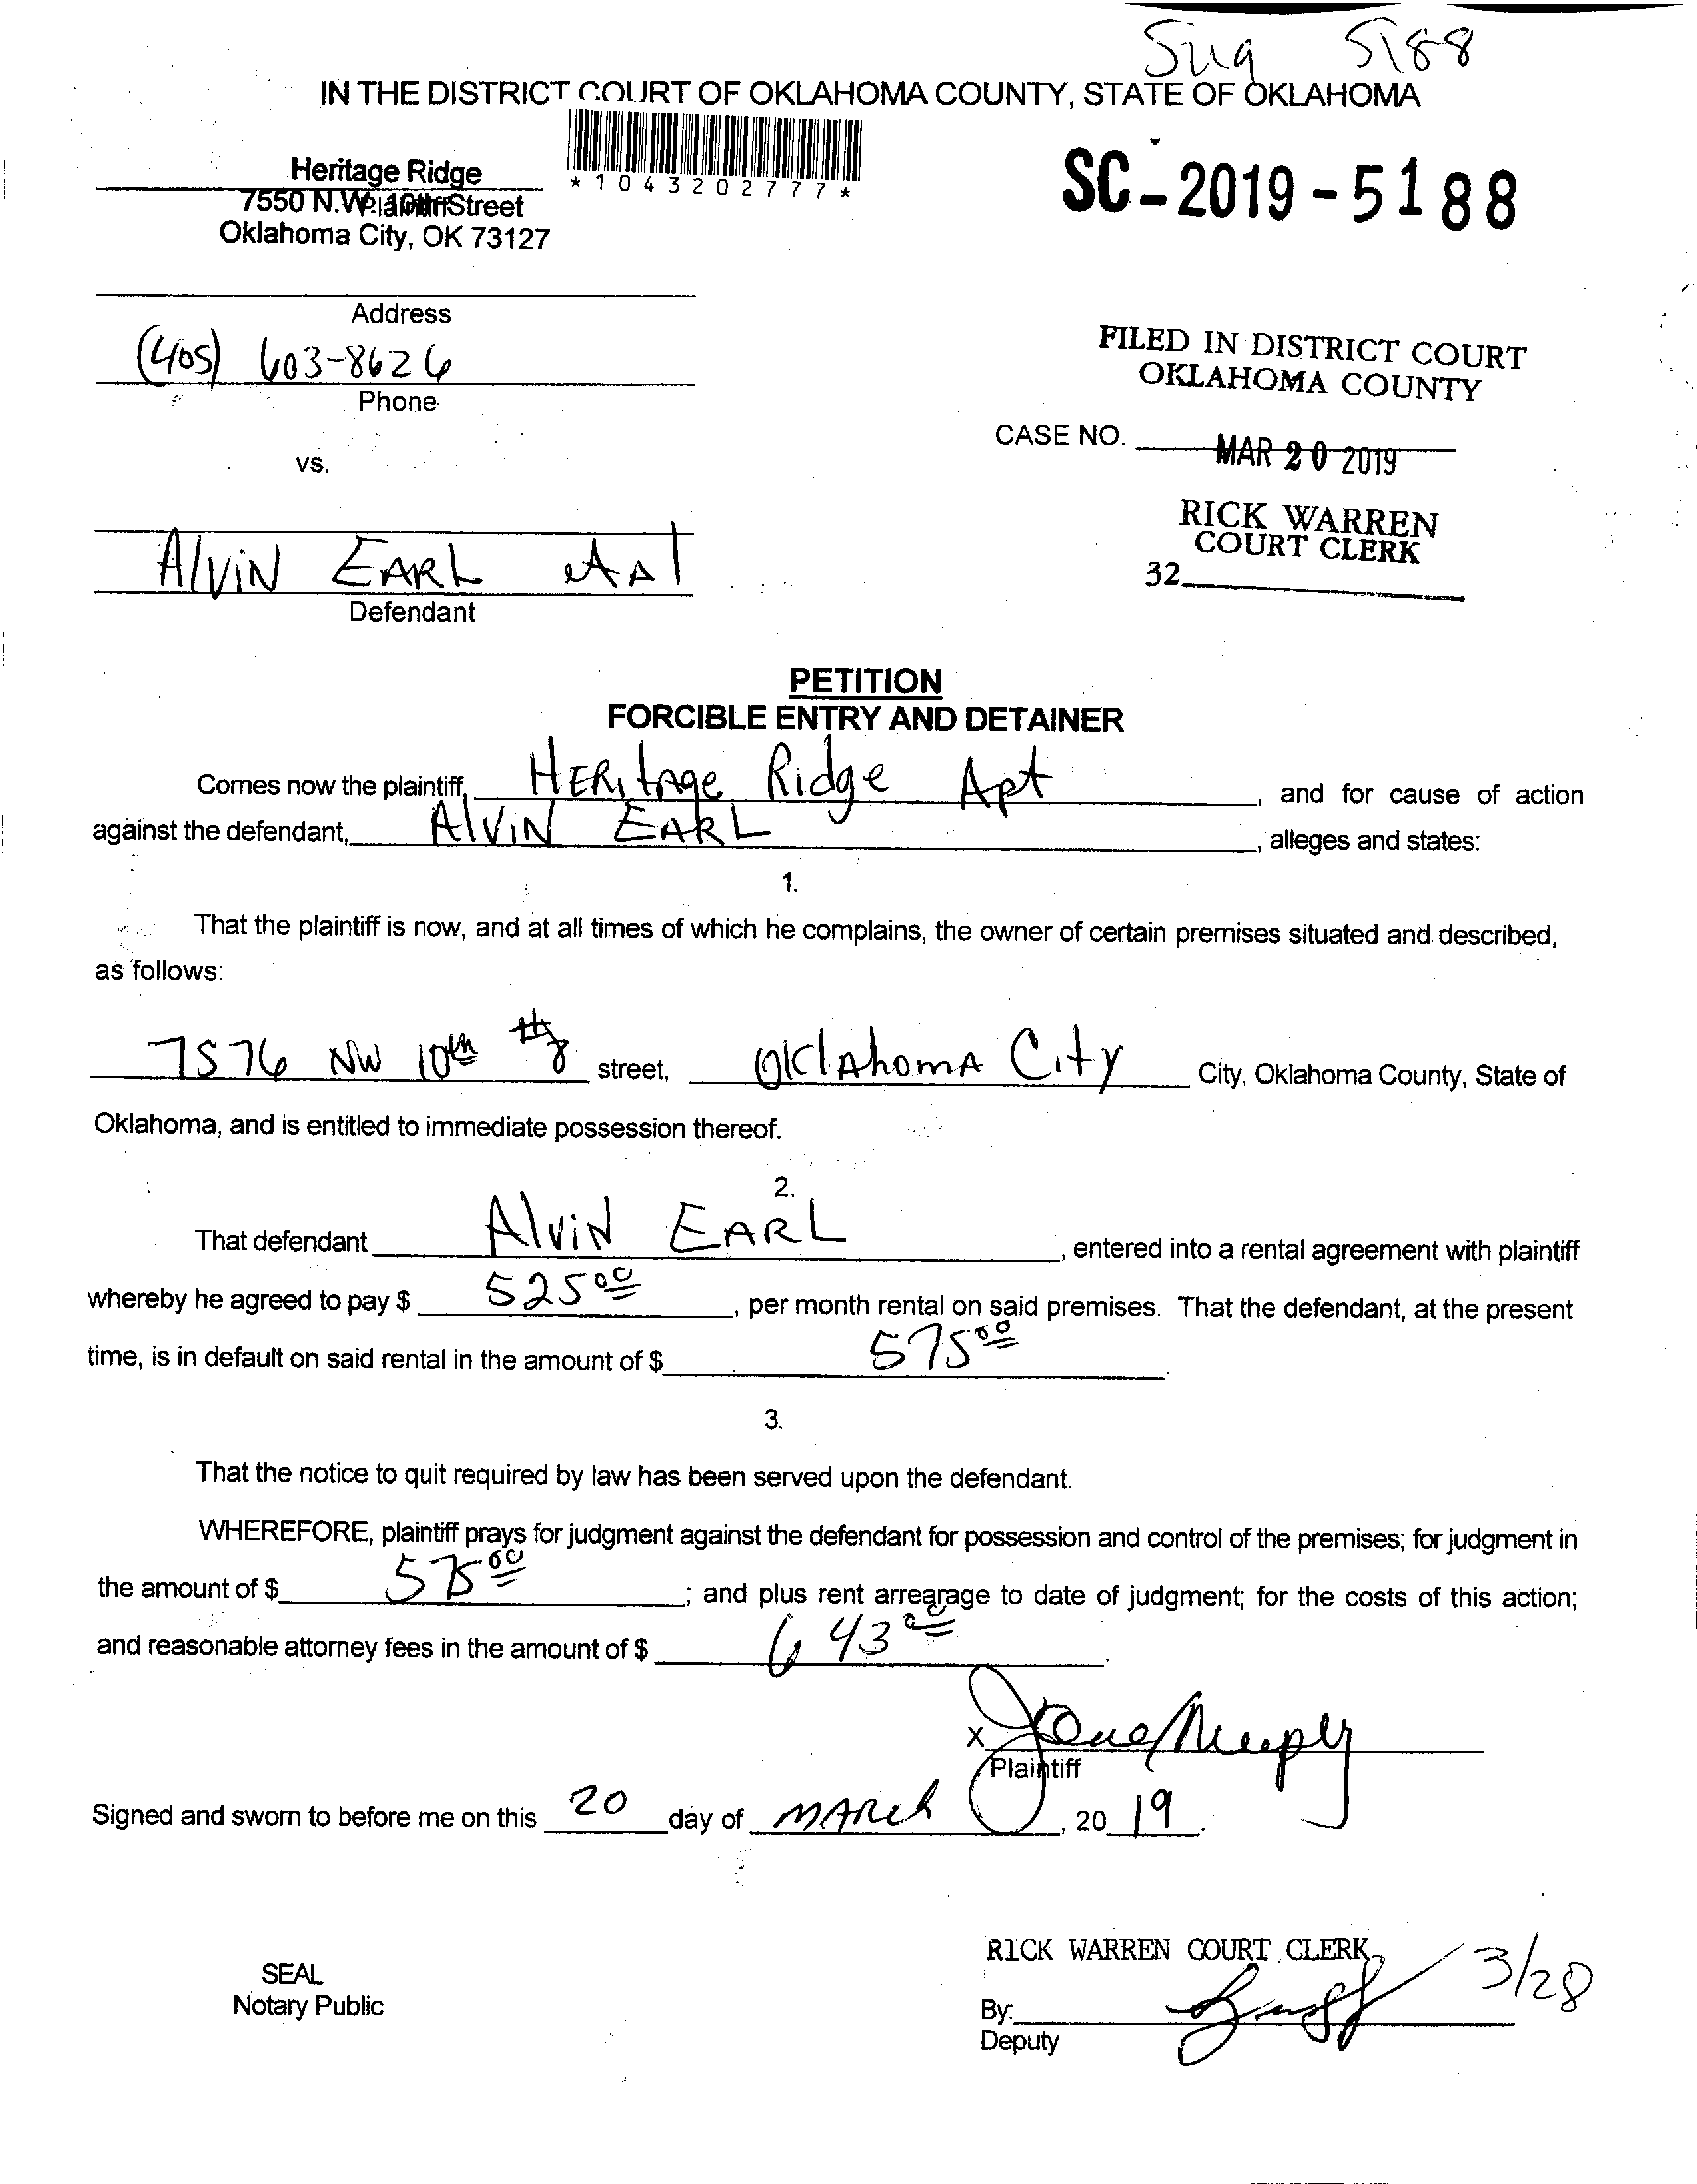 5188
IN THE DISTRICT COURT OF OKLAHOMA COUNTY, STATE OF OKLAHOMA
*1043202777*
SC-2019-5188
Heritage Ridge
7550 N.W. 10th Street
Plaintiff
Oklahoma City, OK 73127
Address
(405) 603-8626
Phone
FILED IN DISTRICT COURT
OKLAHOMA COUNTY
CASE NO.
MAR 20 2019
vs.
RICK WARREN
COURT CLERK
32
Alvin EARL
Defendant
PETITION
FORCIBLE ENTRY AND DETAINER
Comes now the plaintiff, HERitage Ridge Apt, and for cause of action
against the defendant, AlviN EARL, alleges and states:
1.
That the plaintiff is now, and at all times of which he complains, the owner of certain premises situated and described,
as follows:
7576 NW 10th #8 street, OklAhomA City City, Oklahoma County, State of
Oklahoma, and is entitled to immediate possession thereof.
2.
That defendant AlviN EARL, entered into a rental agreement with plaintiff
whereby he agreed to pay $ 525 00, per month rental on said premises. That the defendant, at the present
time, is in default on said rental in the amount of $ 575 00.
3.
That the notice to quit required by law has been served upon the defendant.
WHEREFORE, plaintiff prays for judgment against the defendant for possession and control of the premises; for judgment in
the amount of $ 575 00; and plus rent arrearage to date of judgment; for the costs of this action;
and reasonable attorney fees in the amount of $ 643 00.
X
Plaintiff
Signed and sworn to before me on this 20 day of MARch, 20 19.
RICK WARREN COURT CLERK
3/28
SEAL
Notary Public
By:
Deputy